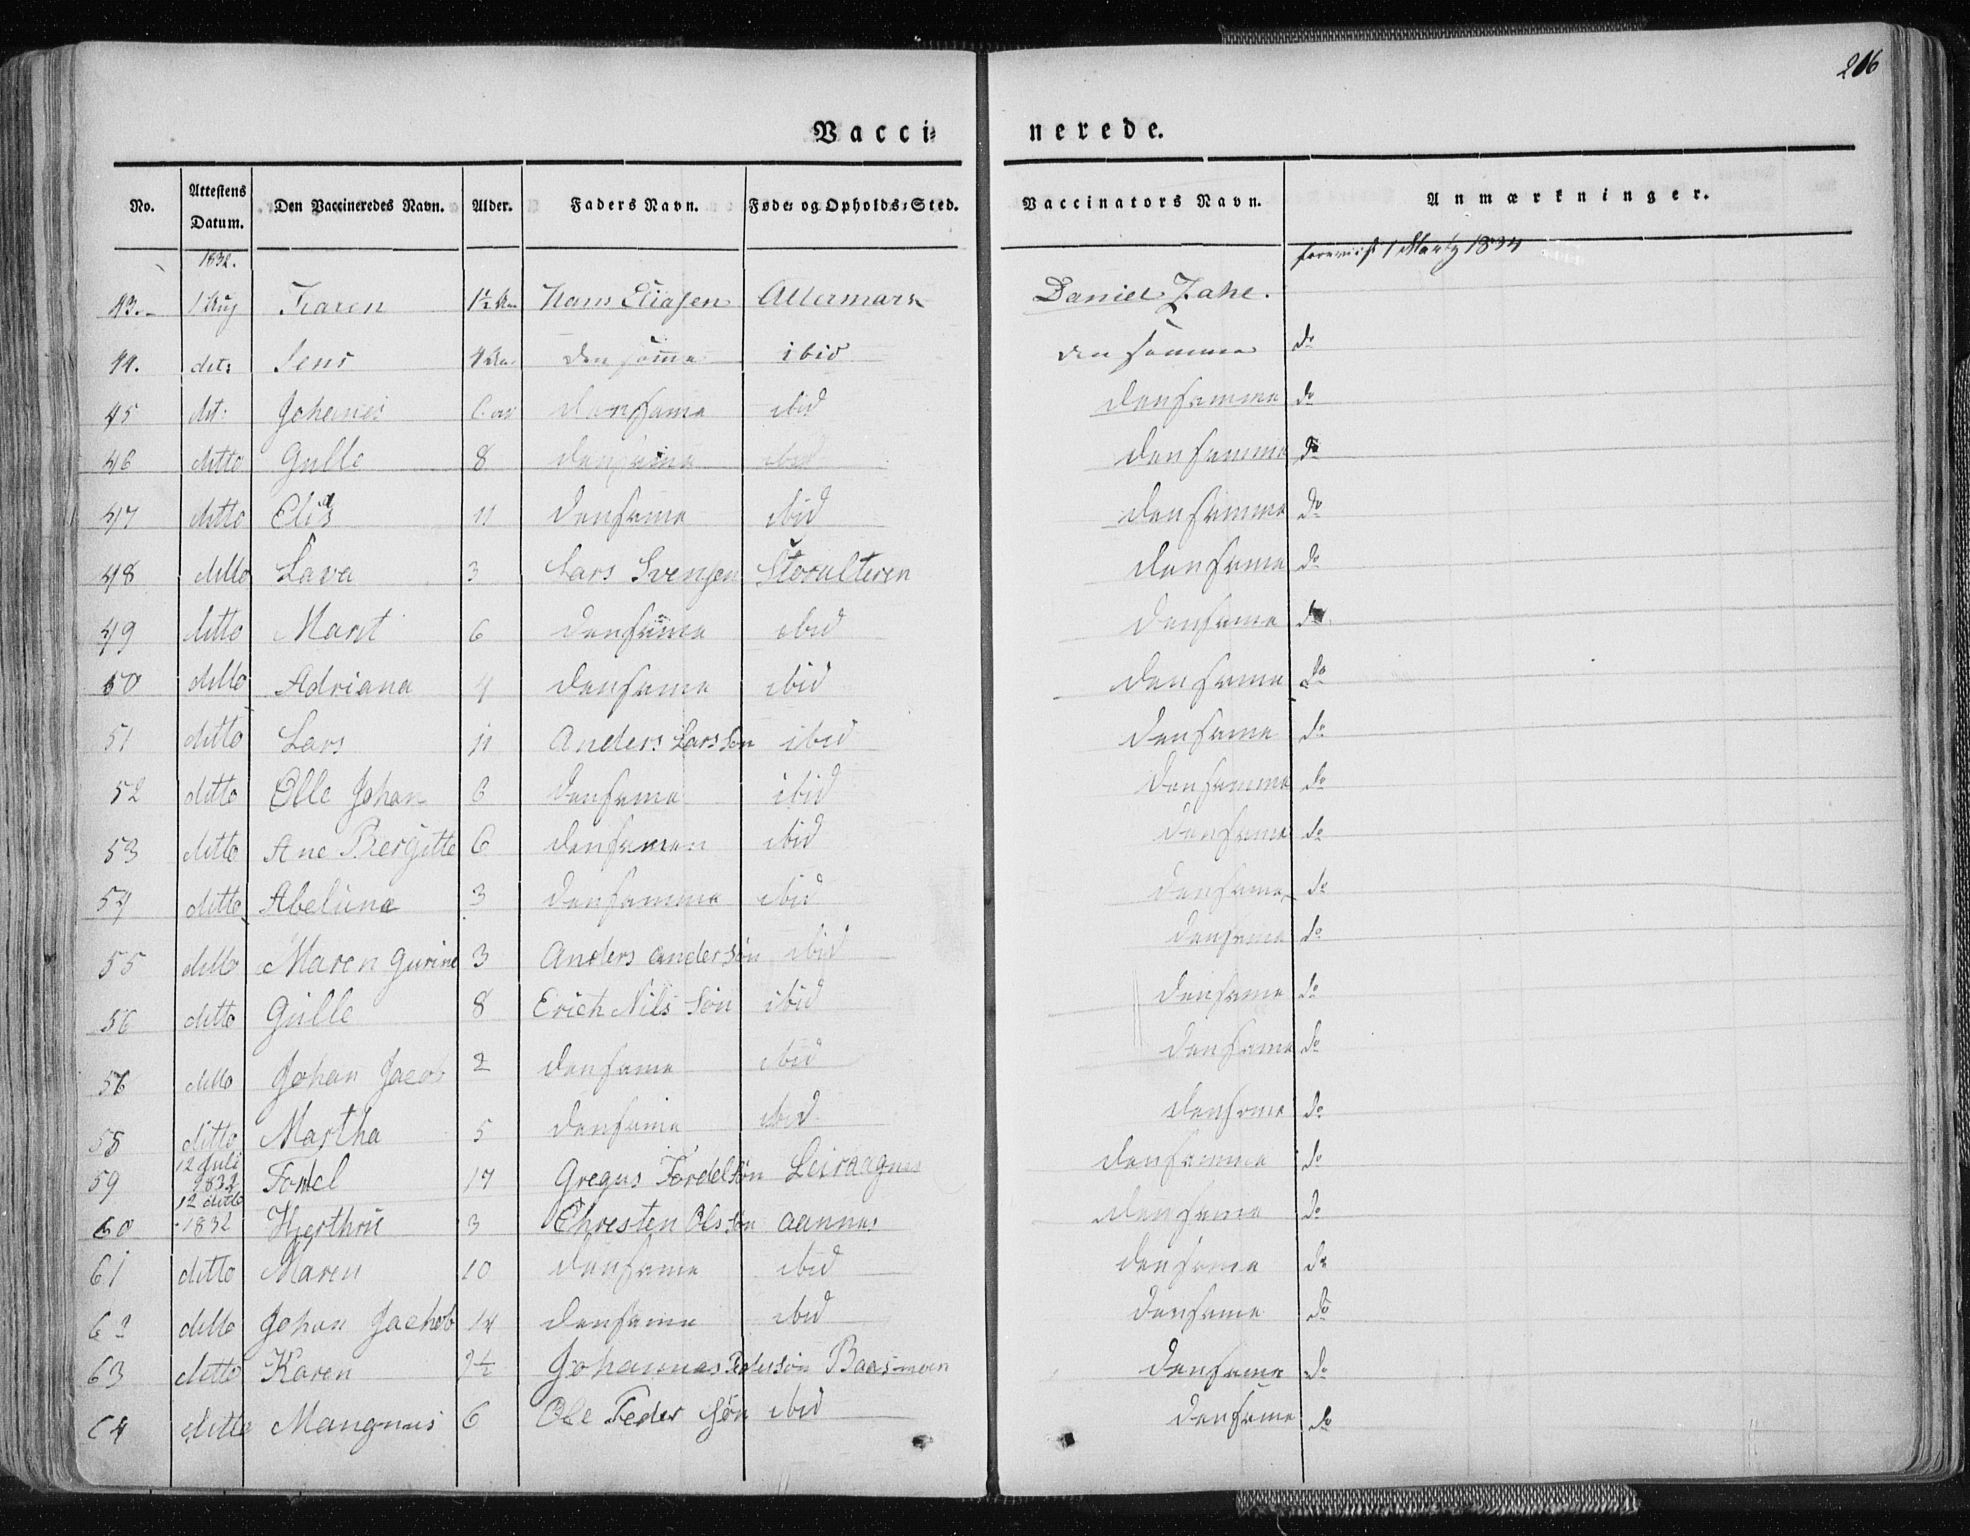 206
Vacci= nerede.
No. Attestens Datum. Den Vaccineredes Navn. Alder. Faders Navn. Føde- og Opholds-Sted. Vaccinators Navn. Anmærkninger.
1832. 1 Martz 1834
43. 1 Aug Karen 1½ Hans Eliasen Altermark Daniel Zahl.
44. dit: Jens 4 den samme ibid den samme do
45 dit: Johanes 6 densame ibid densamme do
46 ditto Gulle 8 densame ibid densamme do
47 ditto 11 densame ibid densamme do
48 ditto Lava 3 Lars Svensen Storalteren densame do
49 ditto Marit 6 densame ibid densame do
50 ditto Adriana 4 densame ibid densame do
51 ditto Lars 11 Anders Larssøn ibid densame do
52 ditto Olle Johan 6 densame ibid densamme do
53 ditto Ane Bergitte 6 densamen ibid densame do
54 ditto Abeluna 3 densamme ibid densame do
55 ditto Maren Gurine 3 Anders andersøn ibid densame do
56 ditto Gulle 8 Erich Nils søn ibid densame do
56 ditto Johan Jacob 2 densame ibid densame do
58 ditto Martha 5 densame ibid densame do
59 12 Juli 1832 17 Gregus Fordelsøn densamme do
60 12 ditto 1832 3 Chresten Olssøn aannes densame do
61 ditto Maren 10 densame ibid densame do
62 ditto Johan Jachob 14 densame ibid densame do
63 ditto Karen Johannes Pedersøn Baasmoen densame do
64 ditto Mangnus 6 Ole Peder søn ibid densame do